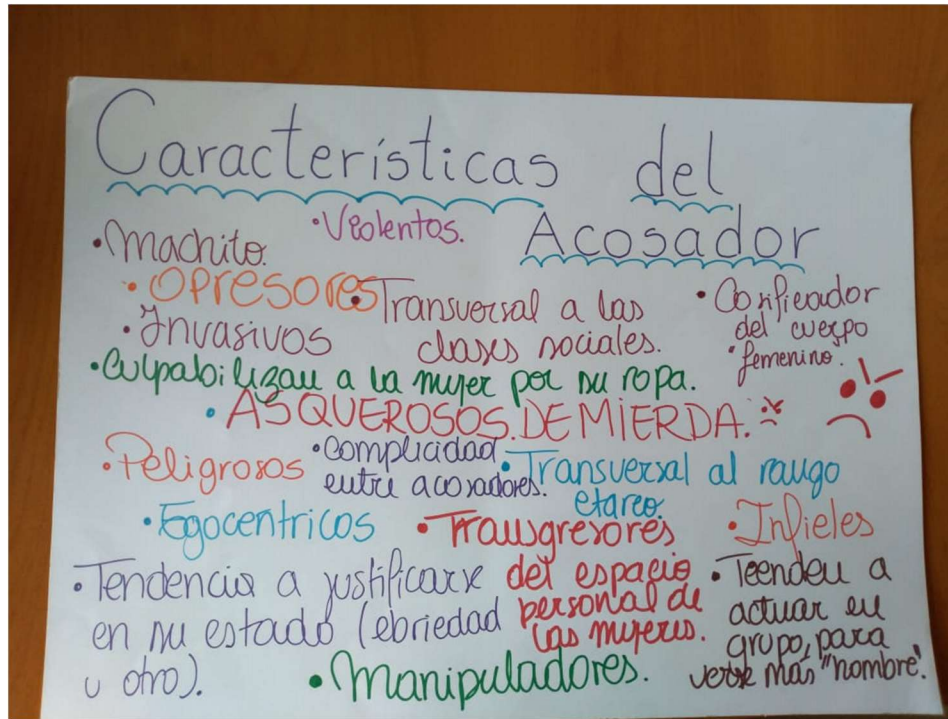 Características del
Acosador
• Violentos.
• Machito.
• OPRESORES
• Transversal a las
clases sociales.
• Cosificador
del cuerpo
femenino.
• Invasivos
• Culpabilizan a la mujer por su ropa.
• ASQUEROSOS DE MIERDA.
• Peligrosos
• complicidad
entre acosadores.
• Transversal al rango
etareo.
• Egocentricos
• Transgresores
del espacio
personal de
las mujeres.
• Infieles
• Tendencia a justificarse
en su estado (ebriedad
u otro).
• Teenden a
actuar en
grupo, para
verse más "hombre".
• Manipuladores.